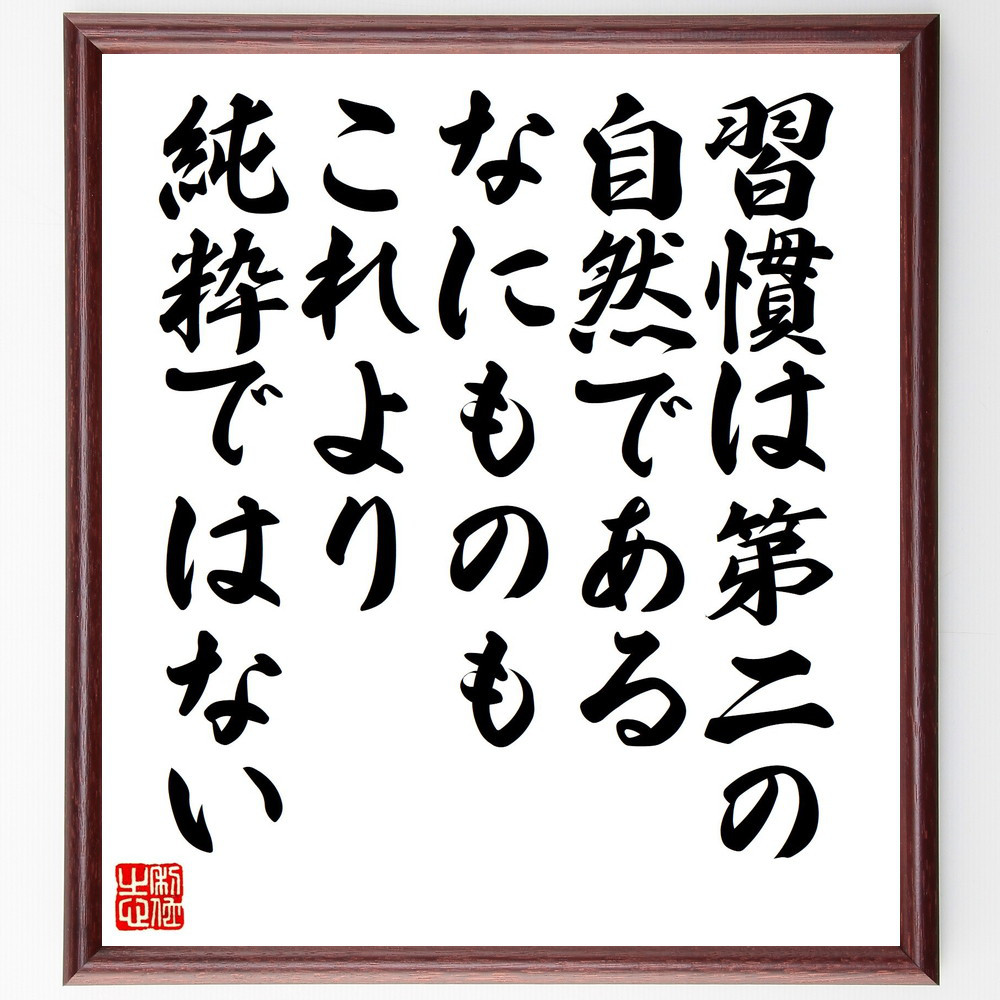 習慣は第二の
自然である
なにものも
これより
純粋ではない